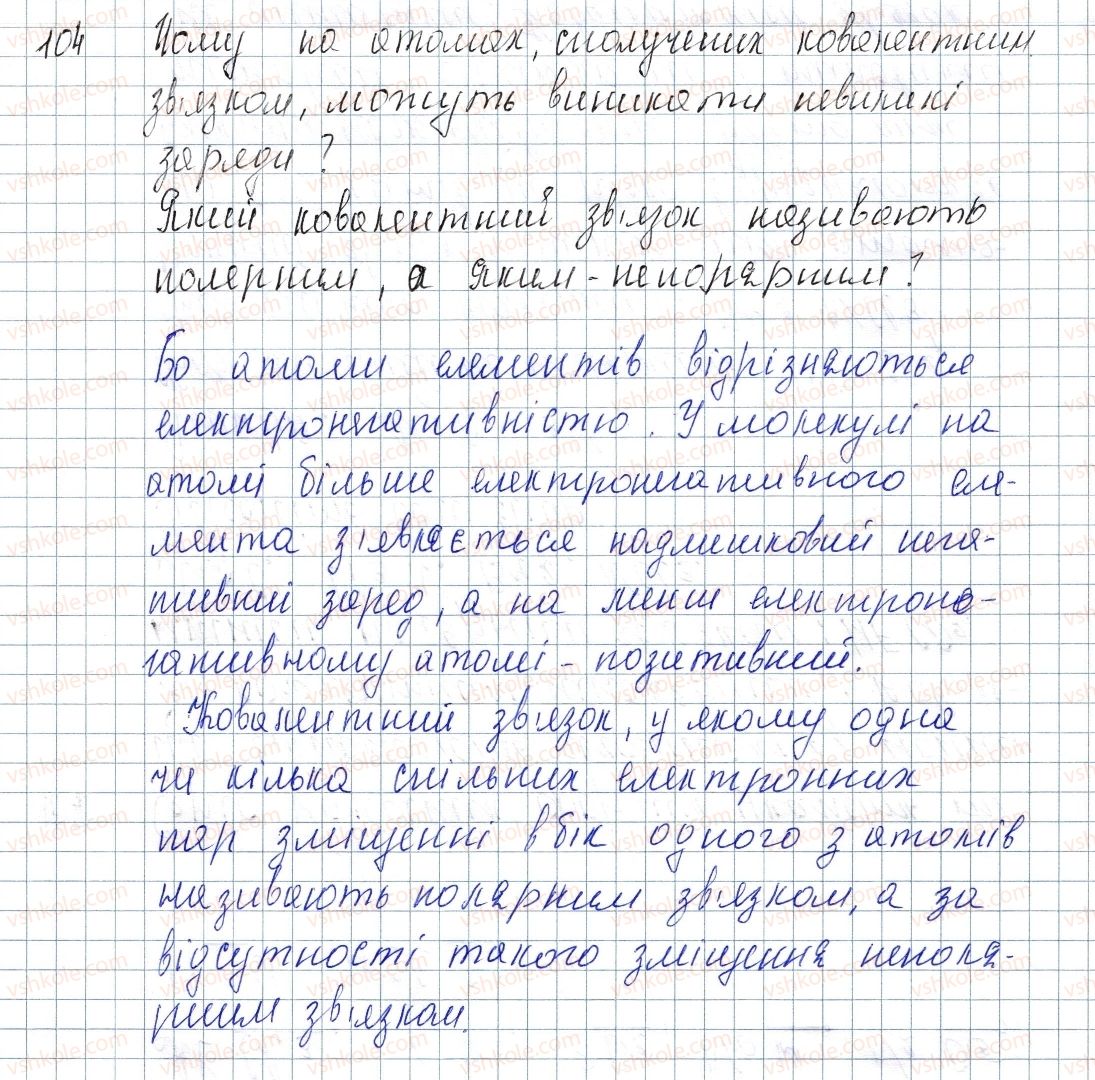 104 Чому на атомах, сполучених ковалентним
зв'язком, можуть виникати невеликі
заряди?
Який ковалентний зв'язок називають
полярним, а яким - неполярним?
Бо атоми елементів відрізняються
електронегативністю. У молекулі на
атомі більше електронегативного еле-
мента з'являється надлишковий нега-
тивний заряд, а на менш електроне-
гативному атомі - позитивний.
Ковалентний зв'язок, у якому одна
чи кілька спільних електронних
пар зміщенні в бік одного з атомів
називають полярним зв'язком, а за
відсутності такого зміщення неполя-
рним зв'язком.